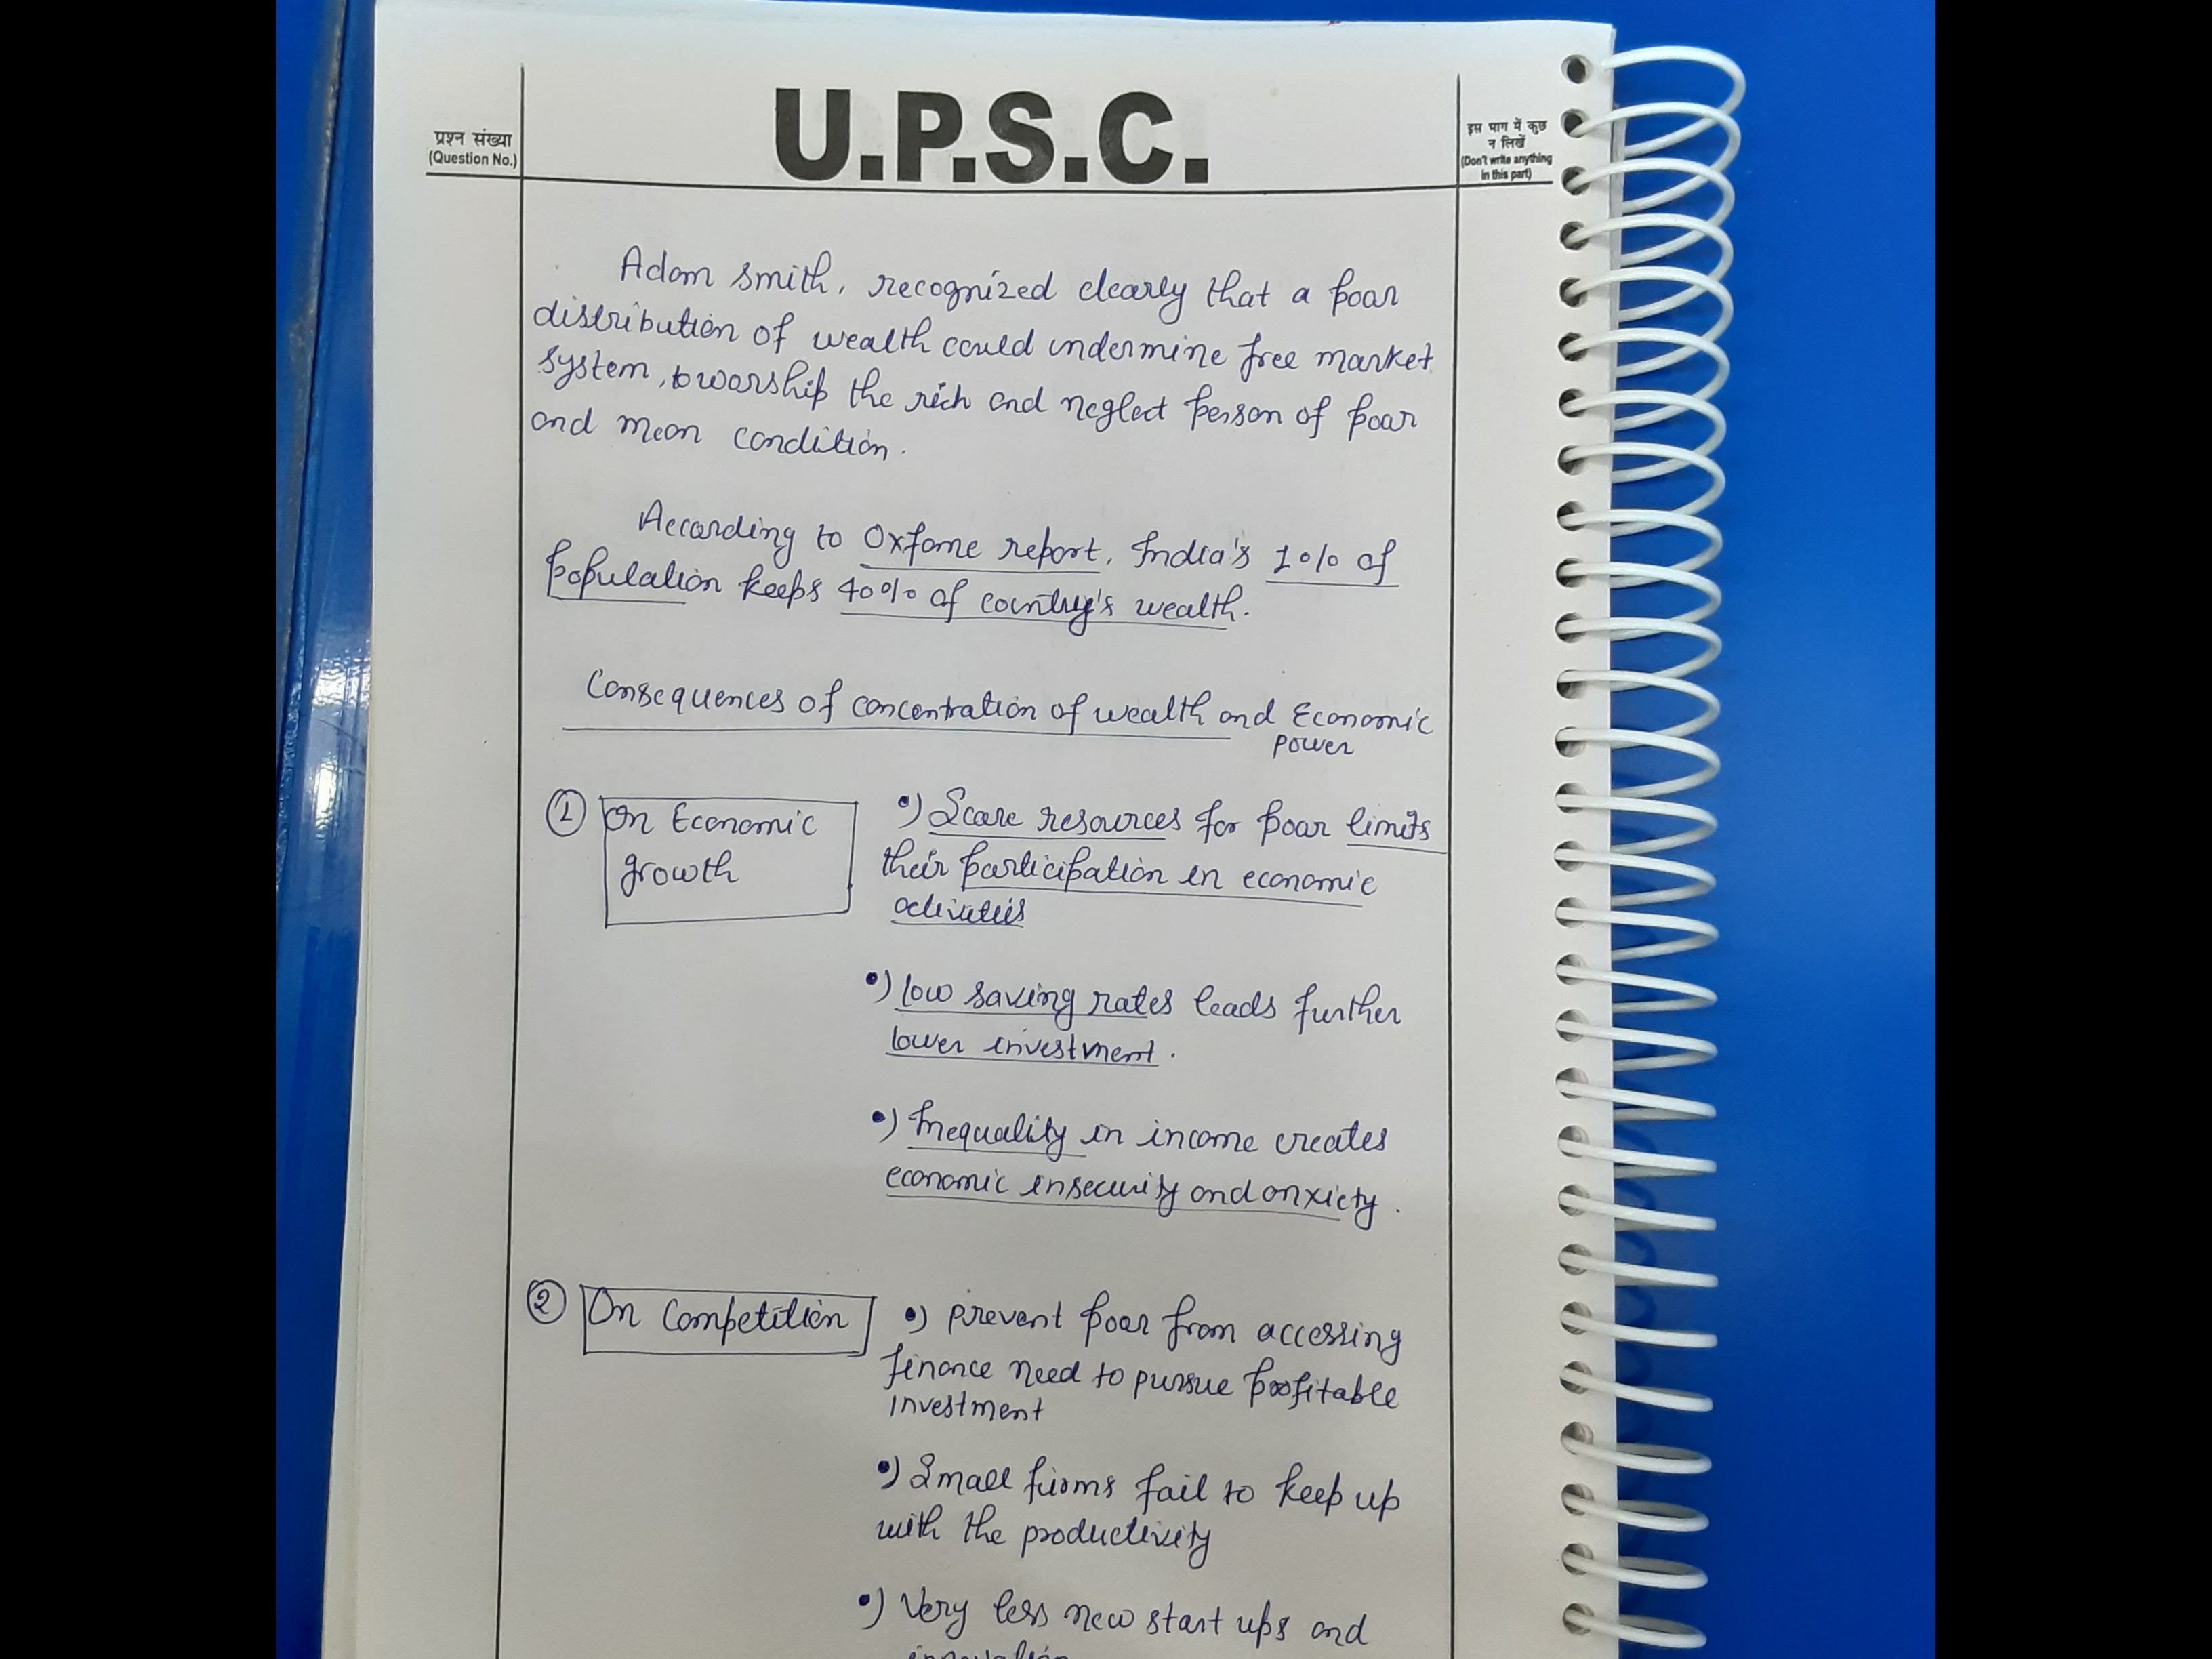 U.P.S.C.
प्रश्न संख्या
(Question No.)
इस भाग में कुछ
न लिखें
(Don't write anything
in this part)
Adam smith, recognized clearly that a poor
distribution of wealth could undermine free market
system, to worship the rich and neglect person of poor
and mean condition.
According to Oxfame report, India's 1% of
population keeps 40% of country's wealth.
Consequences of concentration of wealth and Economic
power
① On Economic
growth
•) Scare resources for poor limits
their participation in economic
activities
•) low saving rates leads further
lower investment.
•) Inequality in income creates
economic insecurity and anxiety.
② On Competition
•) prevent poor from accessing
finance need to pursue profitable
investment
•) Small firms fail to keep up
with the productivity
•) Very less new start ups and